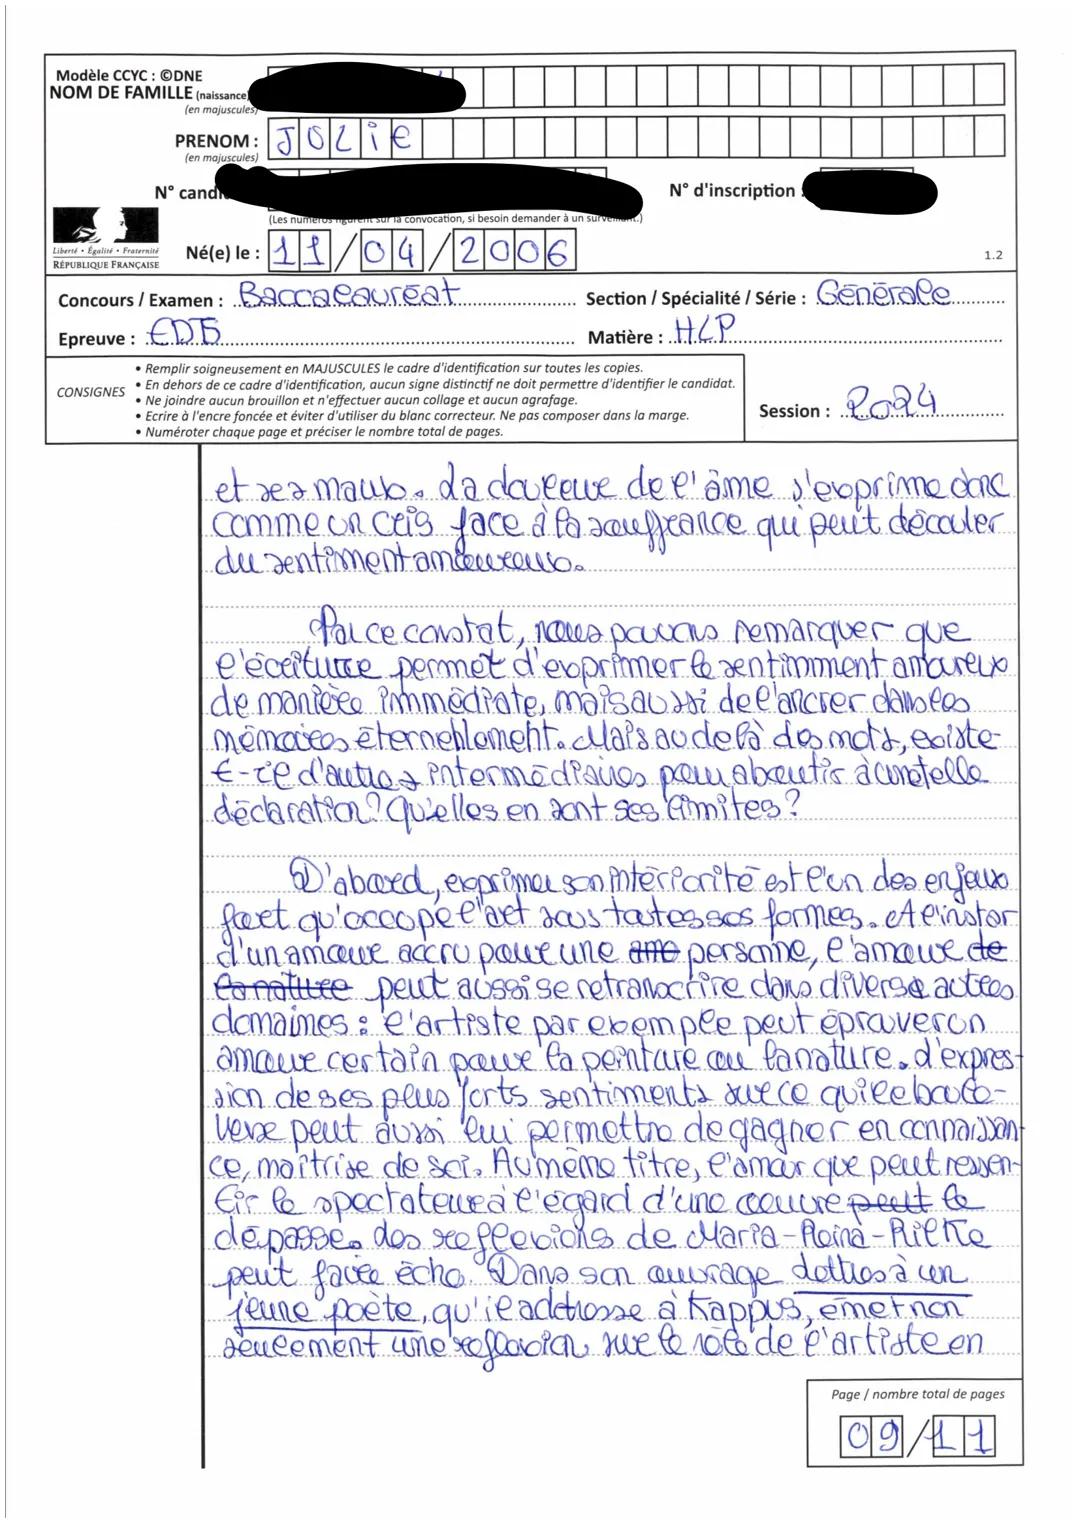 Modèle CCYC : ©DNE
NOM DE FAMILLE (naissance)
(en majuscules)
PRENOM : JOLIE
(en majuscules)
N° candi
N° d'inscription :
(Les numéros figurent sur la convocation, si besoin demander à un surveillant.)
Liberté • Égalité • Fraternité
RÉPUBLIQUE FRANÇAISE
Né(e) le : 11/04/2006
1.2
Concours / Examen : Baccalauréat Section / Spécialité / Série : Générale
Epreuve : EDS Matière : HLP
CONSIGNES
• Remplir soigneusement en MAJUSCULES le cadre d'identification sur toutes les copies.
• En dehors de ce cadre d'identification, aucun signe distinctif ne doit permettre d'identifier le candidat.
• Ne joindre aucun brouillon et n'effectuer aucun collage et aucun agrafage.
• Ecrire à l'encre foncée et éviter d'utiliser du blanc correcteur. Ne pas composer dans la marge.
• Numéroter chaque page et préciser le nombre total de pages.
Session : 2024
et ses maux. La douleur de l'âme s'exprime donc
comme un cris face à la souffrance qui peut découler
du sentiment amoureux.
Par ce constat, nous pouvons remarquer que
l'écriture permet d'exprimer le sentimment amoureux
de manière immédiate, mais aussi de l'ancrer dans les
mémoires éternellement. Mais au delà des mots, existe-
t-il d'autres intermédiaires pour aboutir à une telle
déclaration? Qu'elles en sont ses limites?
D'abord, exprimer son intériorité est l'un des enjeux
fort qu'occupe l'art sous toutes ses formes. A l'instar
d'un amour accru pour une ame personne, l'amour de
la nature peut aussi se retranscrire dans diverse autres
domaines : l'artiste par exemple peut éprouver un
amour certain pour la peinture ou la nature. L'expres-
sion de ses plus forts sentiments sur ce qui le boule-
verse peut aussi lui permettre de gagner en connaissan-
ce, maîtrise de soi. Au même titre, l'amour que peut ressen-
tir le spectateur à l'égard d'une oeuvre peut le
dépasse. Les reflexions de Maria-Reina-Rilke
peut faire écho. Dans son ouvrage Lettres à un
jeune poète, qu'il addresse à Kappus, émet non
seulement une reflexion sur le rôle de l'artiste en
Page / nombre total de pages
09/11